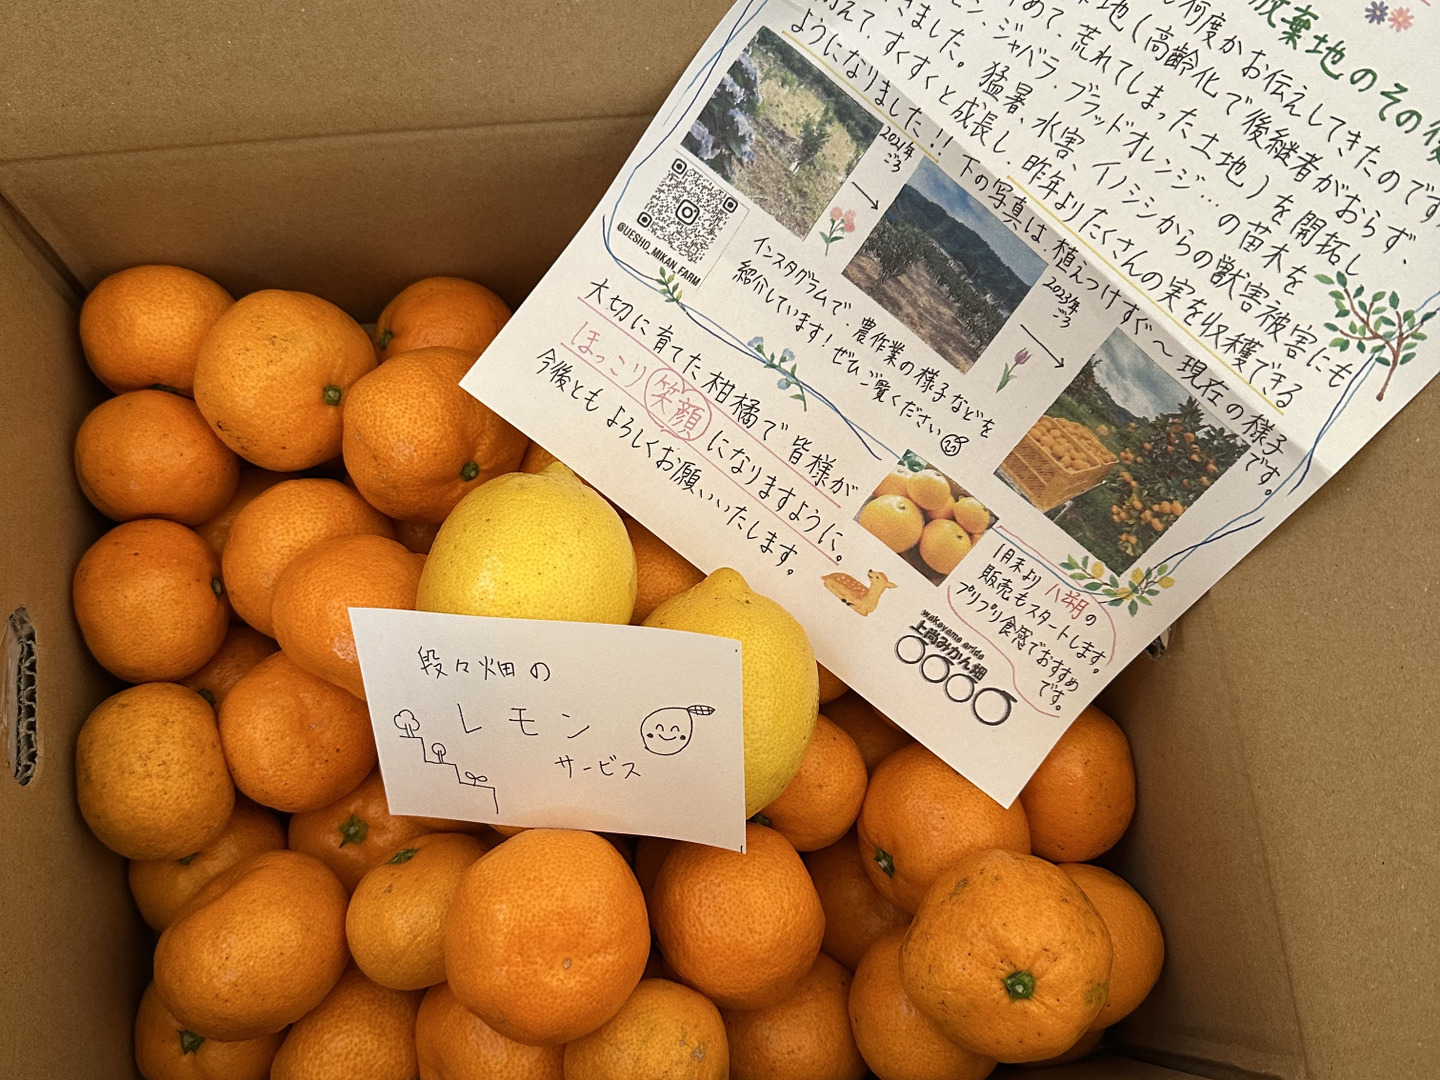 放棄地のその後
何度かお伝えしてきたのです
地(高齢化で後継者がおらず、
めて、荒れてしまった土地)を開拓し
モン、ジャバラ、ブラッドオレンジ…の苗木を
きました。猛暑、水害、イノシシからの獣害被害にも
えて、すくすくと成長し、昨年よりたくさんの実を収穫できる
ようになりました!! 下の写真は、植えつけすぐ〜現在の様子です。
2021年
ごろ
2023年
ごろ
@UESHO_MIKAN_FARM
インスタグラムで、農作業の様子などを
紹介しています!ぜひご覧ください
大切に育てた柑橘で皆様が
ほっこり笑顔になりますように。
今後ともよろしくお願いいたします。
1月末より八朔の
販売もスタートします。
プリプリ食感でおすすめ
です。
wakayama arida
上尚みかん畑
段々畑の
レモン
サービス